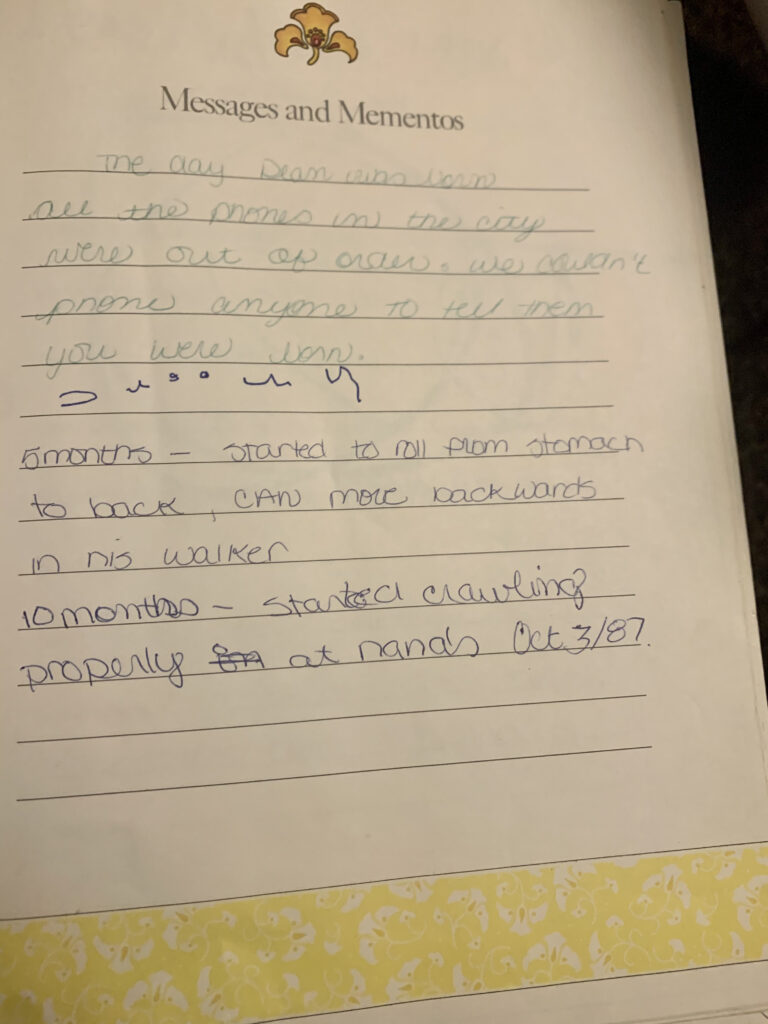 Messages and Mementos
The day Dean was born
all the phones in the city
were out of order. We couldn't
phone anyone to tell them
you were born.
5 months – started to roll from stomach
to back, CAN move backwards
in his walker
10 months – started crawling
properly at nand's Oct 3/87.